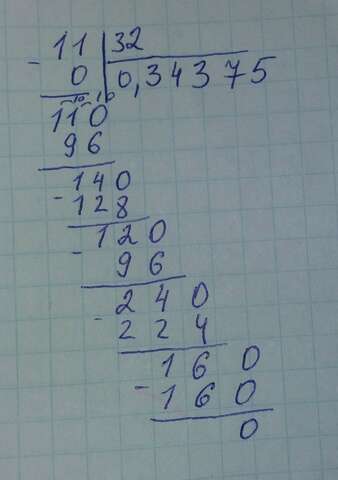 11 32
- 0 0,34375
10 10
110
96
140
- 128
120
- 96
240
- 224
160
- 160
0